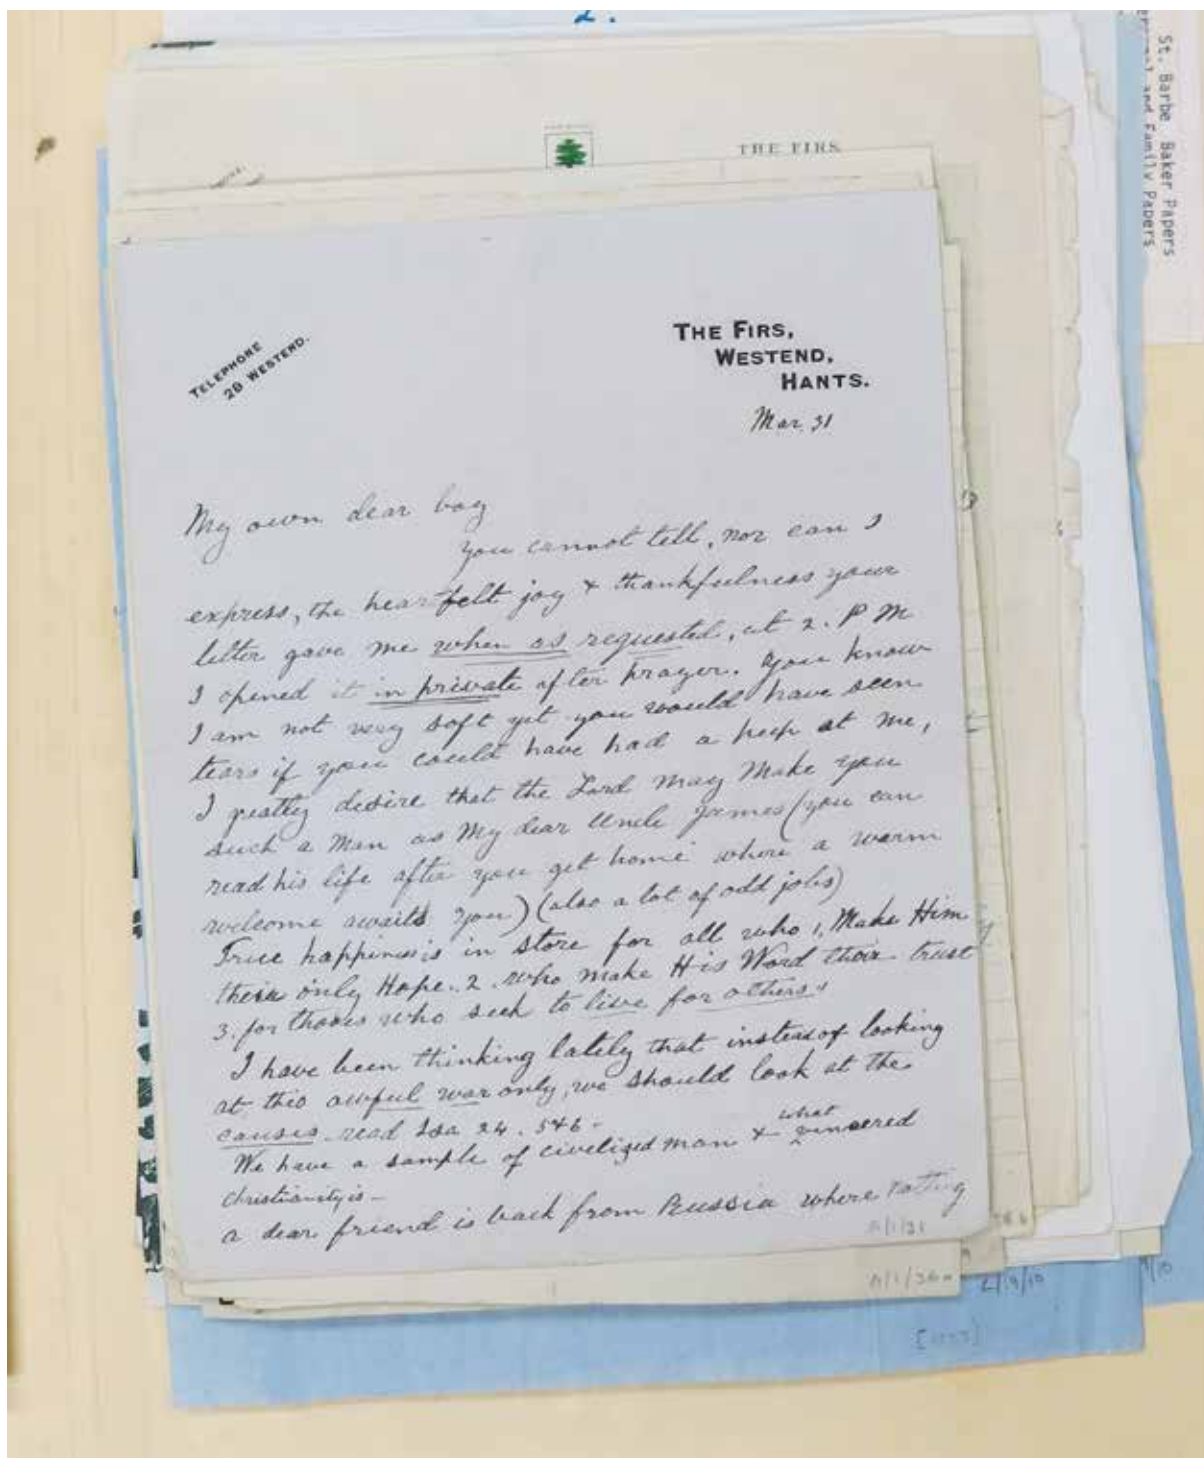 2.
St. Barbe Baker Papers
Personal and Family Papers
THE FIRS
TELEPHONE
2B WESTEND.
THE FIRS,
WESTEND,
HANTS.
Mar. 31
My own dear boy
you cannot tell, nor can I
express, the heartfelt joy & thankfulness your
letter gave me when as requested, at 2. P M
I opened it in private after prayer. You know
I am not very soft yet you would have seen
tears if you could have had a peep at me,
I greatly desire that the Lord may make you
such a man as my dear Uncle James (you can
read his life after you get home where a warm
welcome awaits you) (also a lot of odd jobs)
True happiness is in store for all who 1, Make Him
their only Hope. 2. who make His Word their trust
3. for those who seek to live for others.
I have been thinking lately that instead of looking
at this awful war only, we should look at the
causes. read Isa 24. 5+6 -
We have a sample of civilized man & what
christianity is -
a dear friend is back from Russia where
A/1/31
A/1/36
2/19/10
9/10